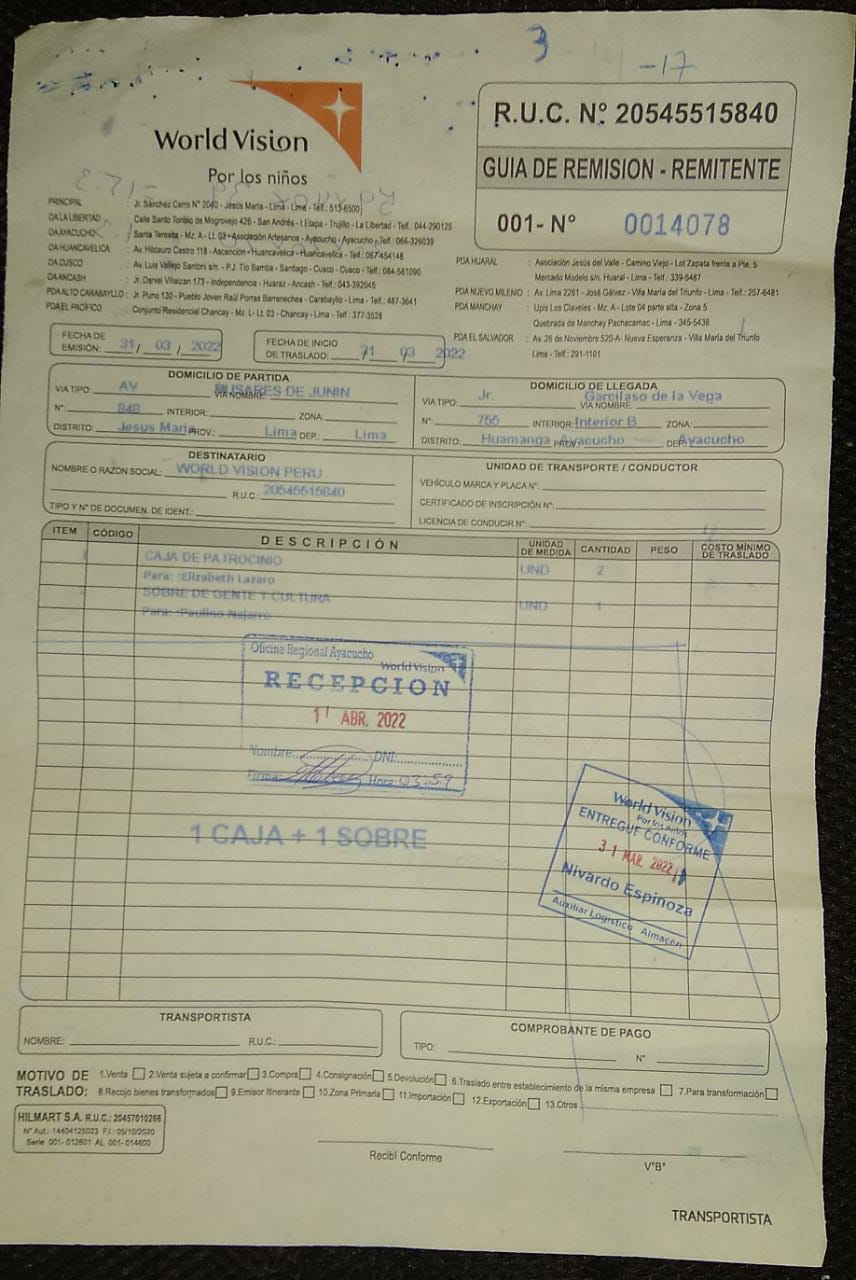 3
-17
World Vision
Por los niños
R.U.C. Nº 20545515840
GUIA DE REMISION - REMITENTE
001- Nº 0014078
PRINCIPAL : Jr. Sánchez Cerro Nº 2040 - Jesús María - Lima - Lima - Telf.: 513-6500
OA LA LIBERTAD : Calle Santo Toribio de Mogrovejo 426 - San Andrés - I Etapa - Trujillo - La Libertad - Telf.: 044-290125
OA AYACUCHO : Santa Teresita - Mz. A - Lt. 03 - Asociación Artesanos - Ayacucho - Ayacucho - Telf.: 066-326039
OA HUANCAVELICA : Av. Hildauro Castro 118 - Ascención - Huancavelica - Huancavelica - Telf.: 067454148
OA CUSCO : Av. Luis Vallejo Santoni s/n. - P.J. Tío Bamba - Santiago - Cusco - Cusco - Telf.: 084-581090
OA ANCASH : Jr. Daniel Villaizan 173 - Independencia - Huaraz - Ancash - Telf.: 043-392045
PDA ALTO CARABAYLLO : Jr. Puno 130 - Pueblo Joven Raúl Porras Barrenechea - Carabayllo - Lima - Telf.: 487-3641
PDA EL PACÍFICO : Conjunto Residencial Chancay - Mz. L - Lt. 03 - Chancay - Lima - Telf.: 377-3528
PDA HUARAL : Asociación Jesús del Valle - Camino Viejo - Lot Zapata frente a Pte. 5
Mercado Modelo s/n. Huaral - Lima - Telf.: 339-5487
PDA NUEVO MILENIO : Av. Lima 2261 - José Gálvez - Villa María del Triunfo - Lima - Telf.: 257-6481
PDA MANCHAY : Upis Los Claveles - Mz. A - Lote 04 parte alta - Zona 5
Quebrada de Manchay Pachacamac - Lima - 345-5438
PDA EL SALVADOR : Av. 26 de Noviembre 520-A- Nueva Esperanza - Villa María del Triunfo
Lima - Telf.: 291-1101
FECHA DE EMISIÓN: 31 / 03 / 2022
FECHA DE INICIO DE TRASLADO: 31 03 2022
DOMICILIO DE PARTIDA
VIA TIPO: AV VIA NOMBRE: HUSARES DE JUNIN
Nº: 848 INTERIOR: ZONA:
DISTRITO: Jesus Maria PROV.: Lima DEP.: Lima
DOMICILIO DE LLEGADA
VIA TIPO: Jr. VIA NOMBRE: Garcilaso de la Vega
Nº: 755 INTERIOR: Interior B ZONA:
DISTRITO: Huamanga PROV.: Ayacucho DEP.: Ayacucho
DESTINATARIO
NOMBRE O RAZÓN SOCIAL: WORLD VISION PERU
R.U.C.: 20545515840
TIPO Y Nº DE DOCUMEN. DE IDENT.:
UNIDAD DE TRANSPORTE / CONDUCTOR
VEHÍCULO MARCA Y PLACA Nº:
CERTIFICADO DE INSCRIPCIÓN Nº:
LICENCIA DE CONDUCIR Nº:
ITEM CÓDIGO DESCRIPCIÓN UNIDAD DE MEDIDA CANTIDAD PESO COSTO MÍNIMO DE TRASLADO
1 CAJA DE PATROCINIO UND 2
Para: :Elizabeth Lazaro
2 SOBRE DE GENTE Y CULTURA UND 1
Para: :Paulino Najarro
Oficina Regional Ayacucho
World Vision
RECEPCION
1 ABR. 2022
Nombre: DNI:
Firma: Hora: 03:59
1 CAJA + 1 SOBRE
World Vision
Por los niños
ENTREGUE CONFORME
31 MAR. 2022
Nivardo Espinoza
Auxiliar Logístico Almacén
TRANSPORTISTA
NOMBRE: R.U.C.:
COMPROBANTE DE PAGO
TIPO: Nº
MOTIVO DE TRASLADO: 1.Venta 2.Venta sujeta a confirmar 3.Compra 4.Consignación 5.Devolución 6.Traslado entre establecimiento de la misma empresa 7.Para transformación
8.Recojo bienes transformados 9.Emisor Itinerante 10.Zona Primaria 11.Importación 12.Exportación 13.Otros
HILMART S.A. R.U.C.: 20457010266
Nº Aut.: 14404125023 F.I.: 05/10/2020
Serie 001- 012601 AL 001- 014600
Recibí Conforme
VºBº
TRANSPORTISTA